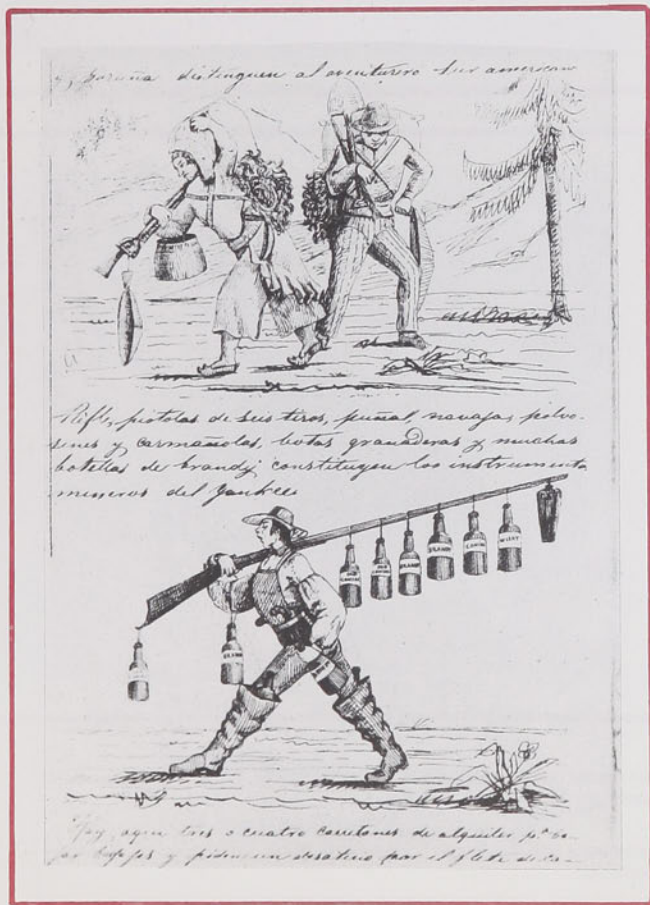 y, distinguen al aventurero Sur americano
Rifle, pistolas de seis tiros, puñal, navajas, polvo-
rines y carmañolas, botas granaderas y muchas
botellas de brandy constituyen los instrumentos
mineros del Yankee.
BRANDY
BRANDY
BRANDY
BRANDY
Hay, aqui tres o cuatro carretones de alquiler pª ba-
jar y piden un desatino por el flete de ca-